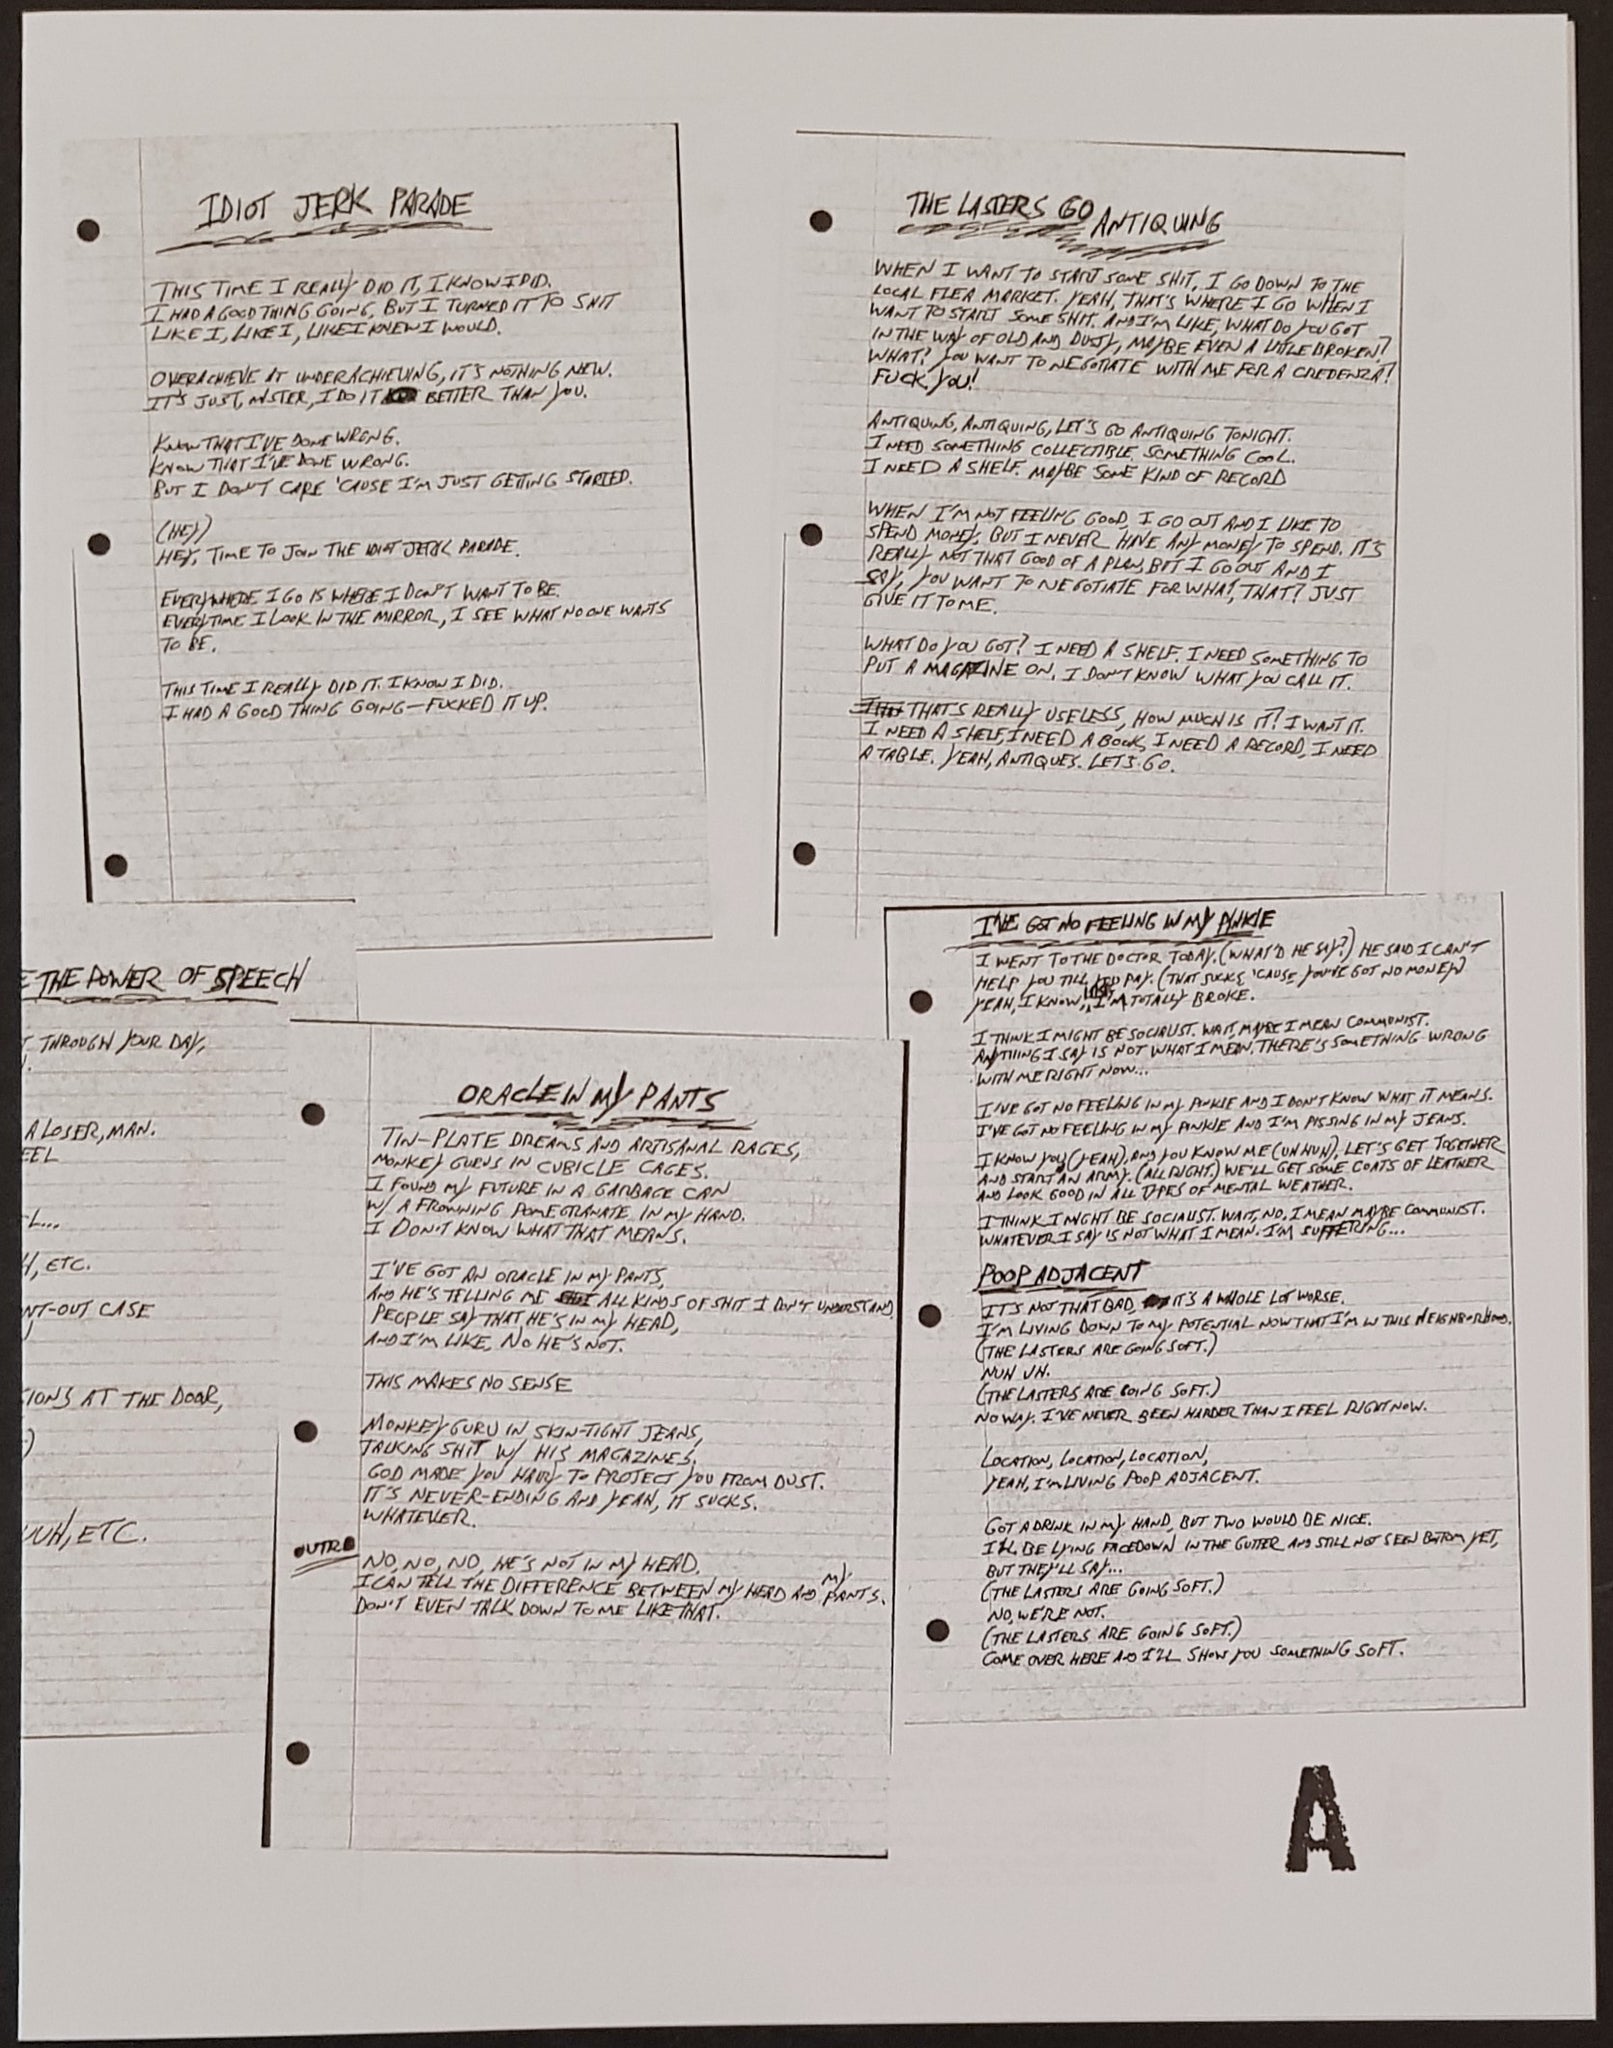 IDIOT JERK PARADE
THIS TIME I REALLY DID IT, I KNOW I DID.
I HAD A GOOD THING GOING, BUT I TURNED IT TO SHIT
LIKE I, LIKE I, LIKE I KNEW I WOULD.
OVERACHIEVE AT UNDERACHIEVING, IT'S NOTHING NEW.
IT'S JUST, MISTER, I DO IT BETTER THAN YOU.
KNOW THAT I'VE DONE WRONG.
KNOW THAT I'VE DONE WRONG.
BUT I DON'T CARE 'CAUSE I'M JUST GETTING STARTED.
(HEY)
HEY, TIME TO JOIN THE IDIOT JERK PARADE.
EVERYWHERE I GO IS WHERE I DON'T WANT TO BE.
EVERYTIME I LOOK IN THE MIRROR, I SEE WHAT NO ONE WANTS
TO BE.
THIS TIME I REALLY DID IT. I KNOW I DID.
I HAD A GOOD THING GOING—FUCKED IT UP.
THE LASTERS GO ANTIQUING
WHEN I WANT TO START SOME SHIT, I GO DOWN TO THE
LOCAL FLEA MARKET. YEAH, THAT'S WHERE I GO WHEN I
WANT TO START SOME SHIT. AND I'M LIKE, WHAT DO YOU GOT
IN THE WAY OF OLD AND DUSTY, MAYBE EVEN A LITTLE BROKEN?
WHAT? YOU WANT TO NEGOTIATE WITH ME FOR A CREDENZA?
FUCK YOU!
ANTIQUING, ANTIQUING, LET'S GO ANTIQUING TONIGHT.
I NEED SOMETHING COLLECTIBLE, SOMETHING COOL.
I NEED A SHELF. MAYBE SOME KIND OF RECORD
WHEN I'M NOT FEELING GOOD, I GO OUT AND I LIKE TO
SPEND MONEY, BUT I NEVER HAVE ANY MONEY TO SPEND. IT'S
REALLY NOT THAT GOOD OF A PLAN, BUT I GO OUT AND I
SAY, YOU WANT TO NEGOTIATE FOR WHAT, THAT? JUST
GIVE IT TO ME.
WHAT DO YOU GOT? I NEED A SHELF. I NEED SOMETHING TO
PUT A MAGAZINE ON. I DON'T KNOW WHAT YOU CALL IT.
THAT'S REALLY USELESS, HOW MUCH IS IT? I WANT IT.
I NEED A SHELF, I NEED A BOOK, I NEED A RECORD, I NEED
A TABLE. YEAH, ANTIQUES. LET'S GO.
E THE POWER OF SPEECH
THROUGH YOUR DAY,
A LOSER, MAN.
EEL
L...
H, ETC.
NT-OUT CASE
)
SIONS AT THE DOOR,
)
UUH, ETC.
ORACLE IN MY PANTS
TIN-PLATE DREAMS AND ARTISANAL RAGES,
MONKEY GURUS IN CUBICLE CAGES.
I FOUND MY FUTURE IN A GARBAGE CAN
W/ A FROWNING POMEGRANATE IN MY HAND.
I DON'T KNOW WHAT THAT MEANS.
I'VE GOT AN ORACLE IN MY PANTS,
AND HE'S TELLING ME ALL KINDS OF SHIT I DON'T UNDERSTAND.
PEOPLE SAY THAT HE'S IN MY HEAD,
AND I'M LIKE, NO HE'S NOT.
THIS MAKES NO SENSE
MONKEY GURU IN SKIN-TIGHT JEANS,
TALKING SHIT W/ HIS MAGAZINES.
GOD MADE YOU HAIRY TO PROTECT YOU FROM DUST.
IT'S NEVER-ENDING AND YEAH, IT SUCKS.
WHATEVER.
OUTRO
NO, NO, NO, HE'S NOT IN MY HEAD.
I CAN TELL THE DIFFERENCE BETWEEN MY HEAD AND MY PANTS.
DON'T EVEN TALK DOWN TO ME LIKE THAT.
I'VE GOT NO FEELING IN MY PINKIE
I WENT TO THE DOCTOR TODAY. (WHAT'D HE SAY?) HE SAID I CAN'T
HELP YOU TILL YOU PAY. (THAT SUCKS 'CAUSE YOU'VE GOT NO MONEY)
YEAH, I KNOW, I'M TOTALLY BROKE.
I THINK I MIGHT BE SOCIALIST. WAIT, MAYBE I MEAN COMMUNIST.
ANYTHING I SAY IS NOT WHAT I MEAN, THERE'S SOMETHING WRONG
WITH ME RIGHT NOW...
I'VE GOT NO FEELING IN MY PINKIE AND I DON'T KNOW WHAT IT MEANS.
I'VE GOT NO FEELING IN MY PINKIE AND I'M PISSING IN MY JEANS.
I KNOW YOU (YEAH), AND YOU KNOW ME (UN HUN), LET'S GET TOGETHER
AND START AN ARMY. (ALL RIGHT) WE'LL GET SOME COATS OF LEATHER
AND LOOK GOOD IN ALL TYPES OF MENTAL WEATHER.
I THINK I MIGHT BE SOCIALIST. WAIT, NO, I MEAN MAYBE COMMUNIST.
WHATEVER I SAY IS NOT WHAT I MEAN. I'M SUFFERING...
POOP ADJACENT
IT'S NOT THAT BAD, IT'S A WHOLE LOT WORSE.
I'M LIVING DOWN TO MY POTENTIAL NOW THAT I'M IN THIS NEIGHBORHOOD.
(THE LASTERS ARE GOING SOFT.)
NUH UH.
(THE LASTERS ARE GOING SOFT.)
NO WAY. I'VE NEVER BEEN HARDER THAN I FEEL RIGHT NOW.
LOCATION, LOCATION, LOCATION,
YEAH, I'M LIVING POOP ADJACENT.
GOT A DRINK IN MY HAND, BUT TWO WOULD BE NICE.
I'LL BE LYING FACEDOWN IN THE GUTTER AND STILL NOT SEEN BOTTOM YET,
BUT THEY'LL SAY...
(THE LASTERS ARE GOING SOFT.)
NO, WE'RE NOT.
(THE LASTERS ARE GOING SOFT.)
COME OVER HERE AND I'LL SHOW YOU SOMETHING SOFT.
A